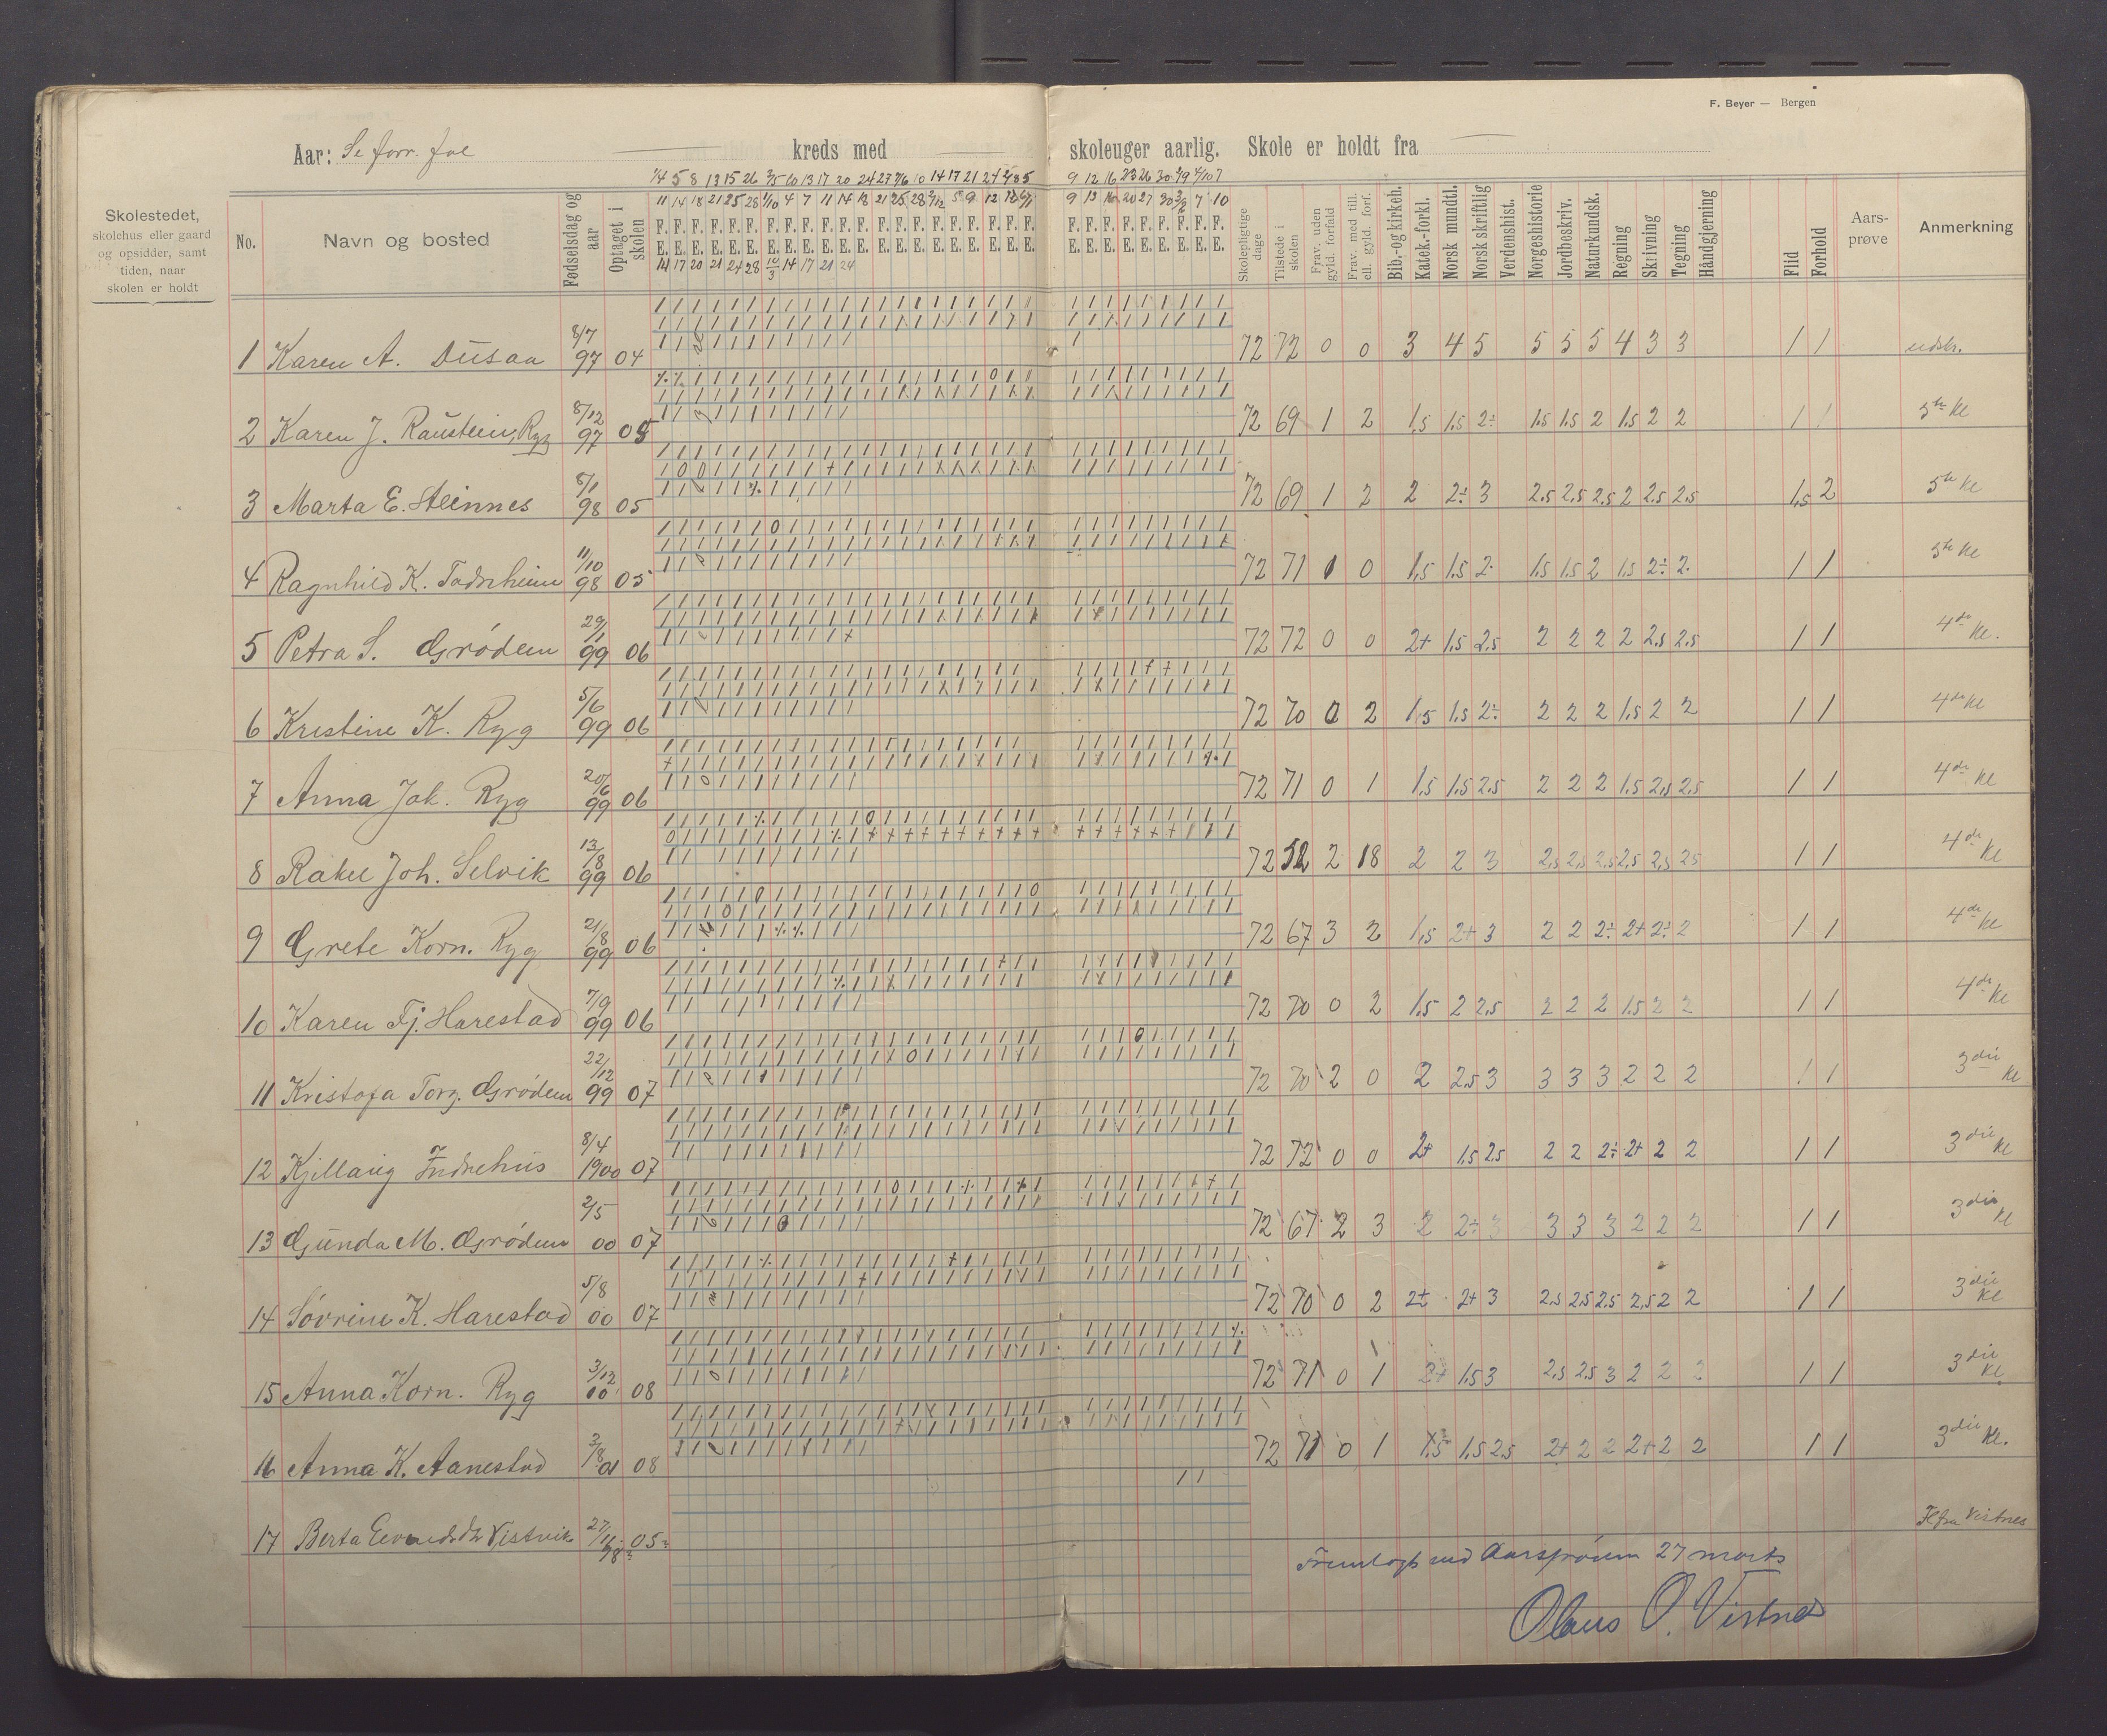 F. Beyer — Bergen
Aar: Se forr. kreds med skoleuger aarlig. Skole er holdt fra
Skolestedet, skolehus eller gaard og opsidder, samt tiden, naar skolen er holdt
No. Navn og bosted Fødselsdag og aar Optaget i skolen Skolepligtige dage Tilstede i skolen Frav. uden gyld. forfald Frav. med till. ell. gyld. forf. Bib.- og kirkeh. Katek.-forkl. Norsk mundtl. Norsk skriftlig Verdenshist. Norgeshistorie Jordbeskriv. Naturkundsk. Regning Skrivning Tegning Håndgjerning Flid Forhold Aars-prøve Anmerkning
1 Karen A. Dusaa 8/7 97 04 72 72 0 0 3 4 5 5 5 5 4 3 3 1 1 udskr.
2 Karen J. Raustein, Ryg 8/12 97 05 72 69 1 2 1,5 1,5 2÷ 1,5 1,5 2 1,5 2 2 1 1 5te Kl
3 Marta E. Steinnes 8/1 98 05 72 69 1 2 2 2÷ 3 2,5 2,5 2,5 2 2,5 2,5 1,5 2 5te Kl
4 Ragnhild K. Todneheim 11/10 98 05 72 71 1 0 1,5 1,5 2 1,5 1,5 2 1,5 2÷ 2 1 1 5te Kl
5 Petra S. Grødem 29/1 99 06 72 72 0 0 2+ 1,5 2,5 2 2 2 2 2,5 2,5 1 1 4de Kl.
6 Kristine K. Ryg 5/6 99 06 72 70 0 2 1,5 1,5 2÷ 2 2 2 1,5 2 2 1 1 4de Kl
7 Anna Joh. Ryg 20/6 99 06 72 71 0 1 1,5 1,5 2,5 2 2 2 1,5 2,5 2,5 1 1 4de Kl
8 Rakel Joh. Selvik 13/8 99 06 72 52 2 18 2 2 3 2,5 2,5 2,5 2,5 2,5 2,5 1 1 4de Kl
9 Grete Korn. Ryg 21/8 99 06 72 67 3 2 1,5 2+ 3 2 2 2÷ 2+ 2÷ 2 1 1 4de Kl
10 Karen Tj. Harestad 7/9 99 06 72 70 0 2 1,5 2 2,5 2 2 2 1,5 2 2 1 1 4de Kl
11 Kristofa Torg. Grødem 22/12 99 07 72 70 2 0 2 2,5 3 3 3 3 2 2 2 1 1 3die Kl
12 Kjellaug Indrehus 8/4 1900 07 72 72 0 0 2+ 1,5 2,5 2 2 2÷ 2+ 2 2 1 1 3die Kl
13 Gunda M. Grødem 2/5 00 07 72 67 2 3 2 2÷ 3 3 3 3 2 2 2 1 1 3die Kl
14 Sovrine K. Harestad 5/8 00 07 72 70 0 2 2+ 2+ 3 2,5 2,5 2,5 2,5 2 2 1 1 3die Kl
15 Anna Korn. Ryg 3/12 00 08 72 71 0 1 2+ 1,5 3 2,5 2,5 3 2 2 2 1 1 3die Kl.
16 Anna K. Aanestad 3/8 01 08 72 71 0 1 1,5 1,5 2,5 2+ 2 2 2+ 2 2 1 1 3die Kl.
17 Berta Vistvik 27/11 98 05 fra Vistnes
Fremlagt ved Aarsprøven 27 marts
Olaus O. Vistnes